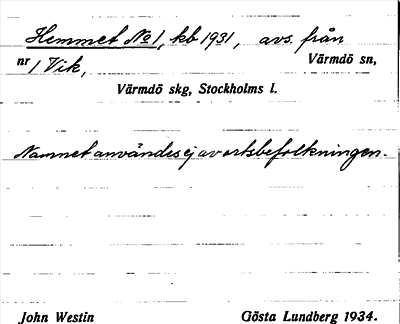 Hemmet No 1, kb 1931, avs. från
nr 1 Vik, Värmdö sn,
Värmdö skg, Stockholms l.
Namnet användes ej av ortsbefolkningen.
John Westin Gösta Lundberg 1934.